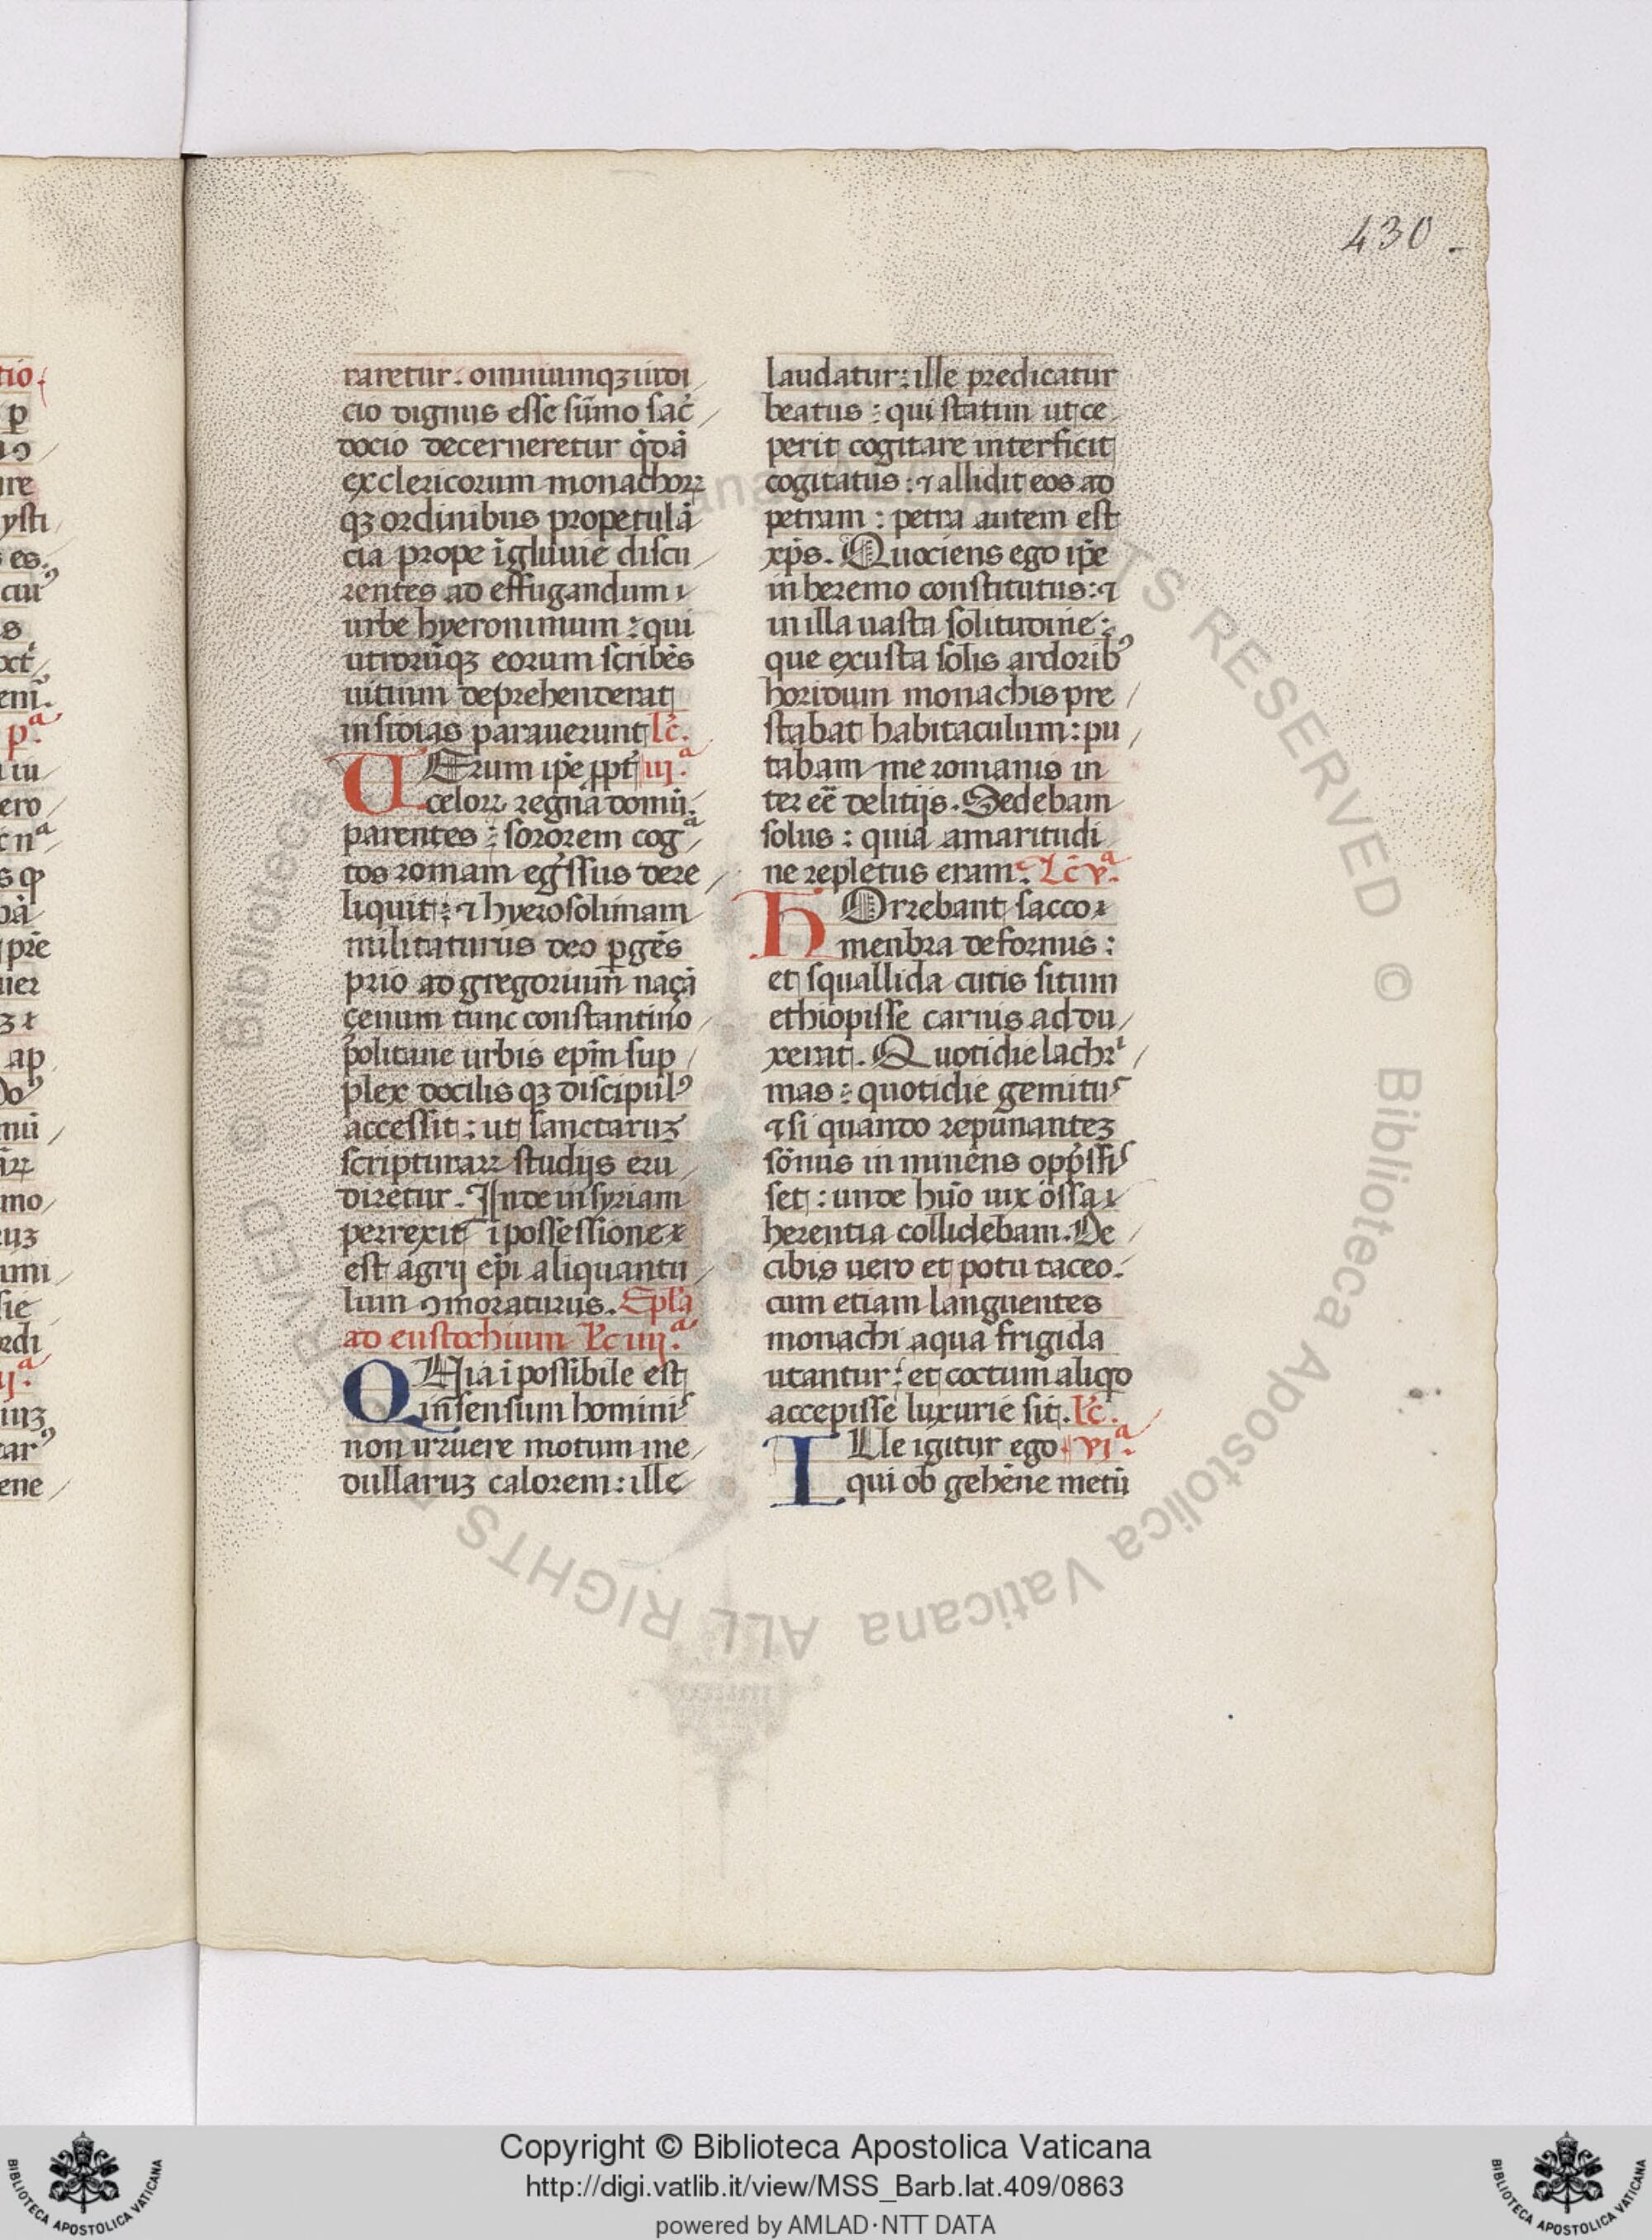 430
tio.
ꝑ
ıꝯ
ure
ysti
es.
ciuꝰ
s
oct
eni.
pª.
iu
ero
c nª
s qꝫ
bā
pre
uer
ap
doꝰ
mū
ıꝝ
mo
ruꝫ
umi
sie
rdi
ijª.
uiꝫ
tarꝰ
ene
raretur. omniumqꝫ iudi
cio dignus esse sūmo sac̄
docio decerneretur q̇dā
ex clericorum monachoꝝ
qꝫ ordinibus propetulā
cia prope īgluuie discu
rentes ad effugandum ı
urbe hyeronimum : qui
utrorūqꝫ eorum scribēs
uitium deprehenderat
insidias parauerunt lc̄.
VErum ip̄e ꝓpt̄ iijª.
celoꝝ regna domū.
parentes : sororem cogª
tos romam eḡssus dere
liquit : ⁊ hyerosolimam
militaturus deo ꝑgēs
prio ad gregorium̄ naçā
çenum tunc constantino
politane urbis ep̄m sup
plex docilis qꝫ discipulꝰ
accessit : ut sanctaruꝫ
scripturaꝝ studijs eru
diretur. Inde in syriam
perrexit ī possessione
est agrij ep̄i aliquantu
lum ꝯmoraturus. Epl̄a
ad eustochium lc̄ iiijª.
QUia īpossibile est
in̄ sensum hominis
non irruere motum me
dullaruꝫ calorem : ille
laudatur : ille predicatur
beatus : qui statim ut ce
perit cogitare interficit
cogitatus : ⁊ allidit eos ad
petram : petra autem est
xp̄s. Quociens ego ip̄e
in heremo constitutus : ⁊
in illa uasta solitudine :
que exusta solis ardoribꝰ
horidum monachis pre
stabat habitaculum : pu
tabam me romanis in
ter eē delitijs. Sedebam
solus : quia amaritudi
ne repletus eram. Lc̄ vª.
HOrrebant sacco
menbra deformis :
et squallida cutis situm
ethiopisse carnis ad du
xerat. Quotidie lachrⁱ
mas : quotidie gemitus
⁊ si quando repūnanteꝫ
sōnus in minēns opp̄ssis
set : unde hūo uix ossa
herentia collidebam. De
cibis uero et potu taceo.
cum etiam languentes
monachi aqua frigida
utantur : et coctum aliqͦd
accepisse luxurie sit. lc̄.
ILle igitur ego viª.
qui ob gehēne metū
Copyright © Biblioteca Apostolica Vaticana
http://digi.vatlib.it/view/MSS_Barb.lat.409/0863
powered by AMLAD·NTT DATA
BIBLIOTECA APOSTOLICA VATICANA
BIBLIOTECA APOSTOLICA VATICANA
© Biblioteca Apostolica Vaticana ALL RIGHTS RESERVED © Biblioteca Apostolica Vaticana ALL RIGHTS RESERVED